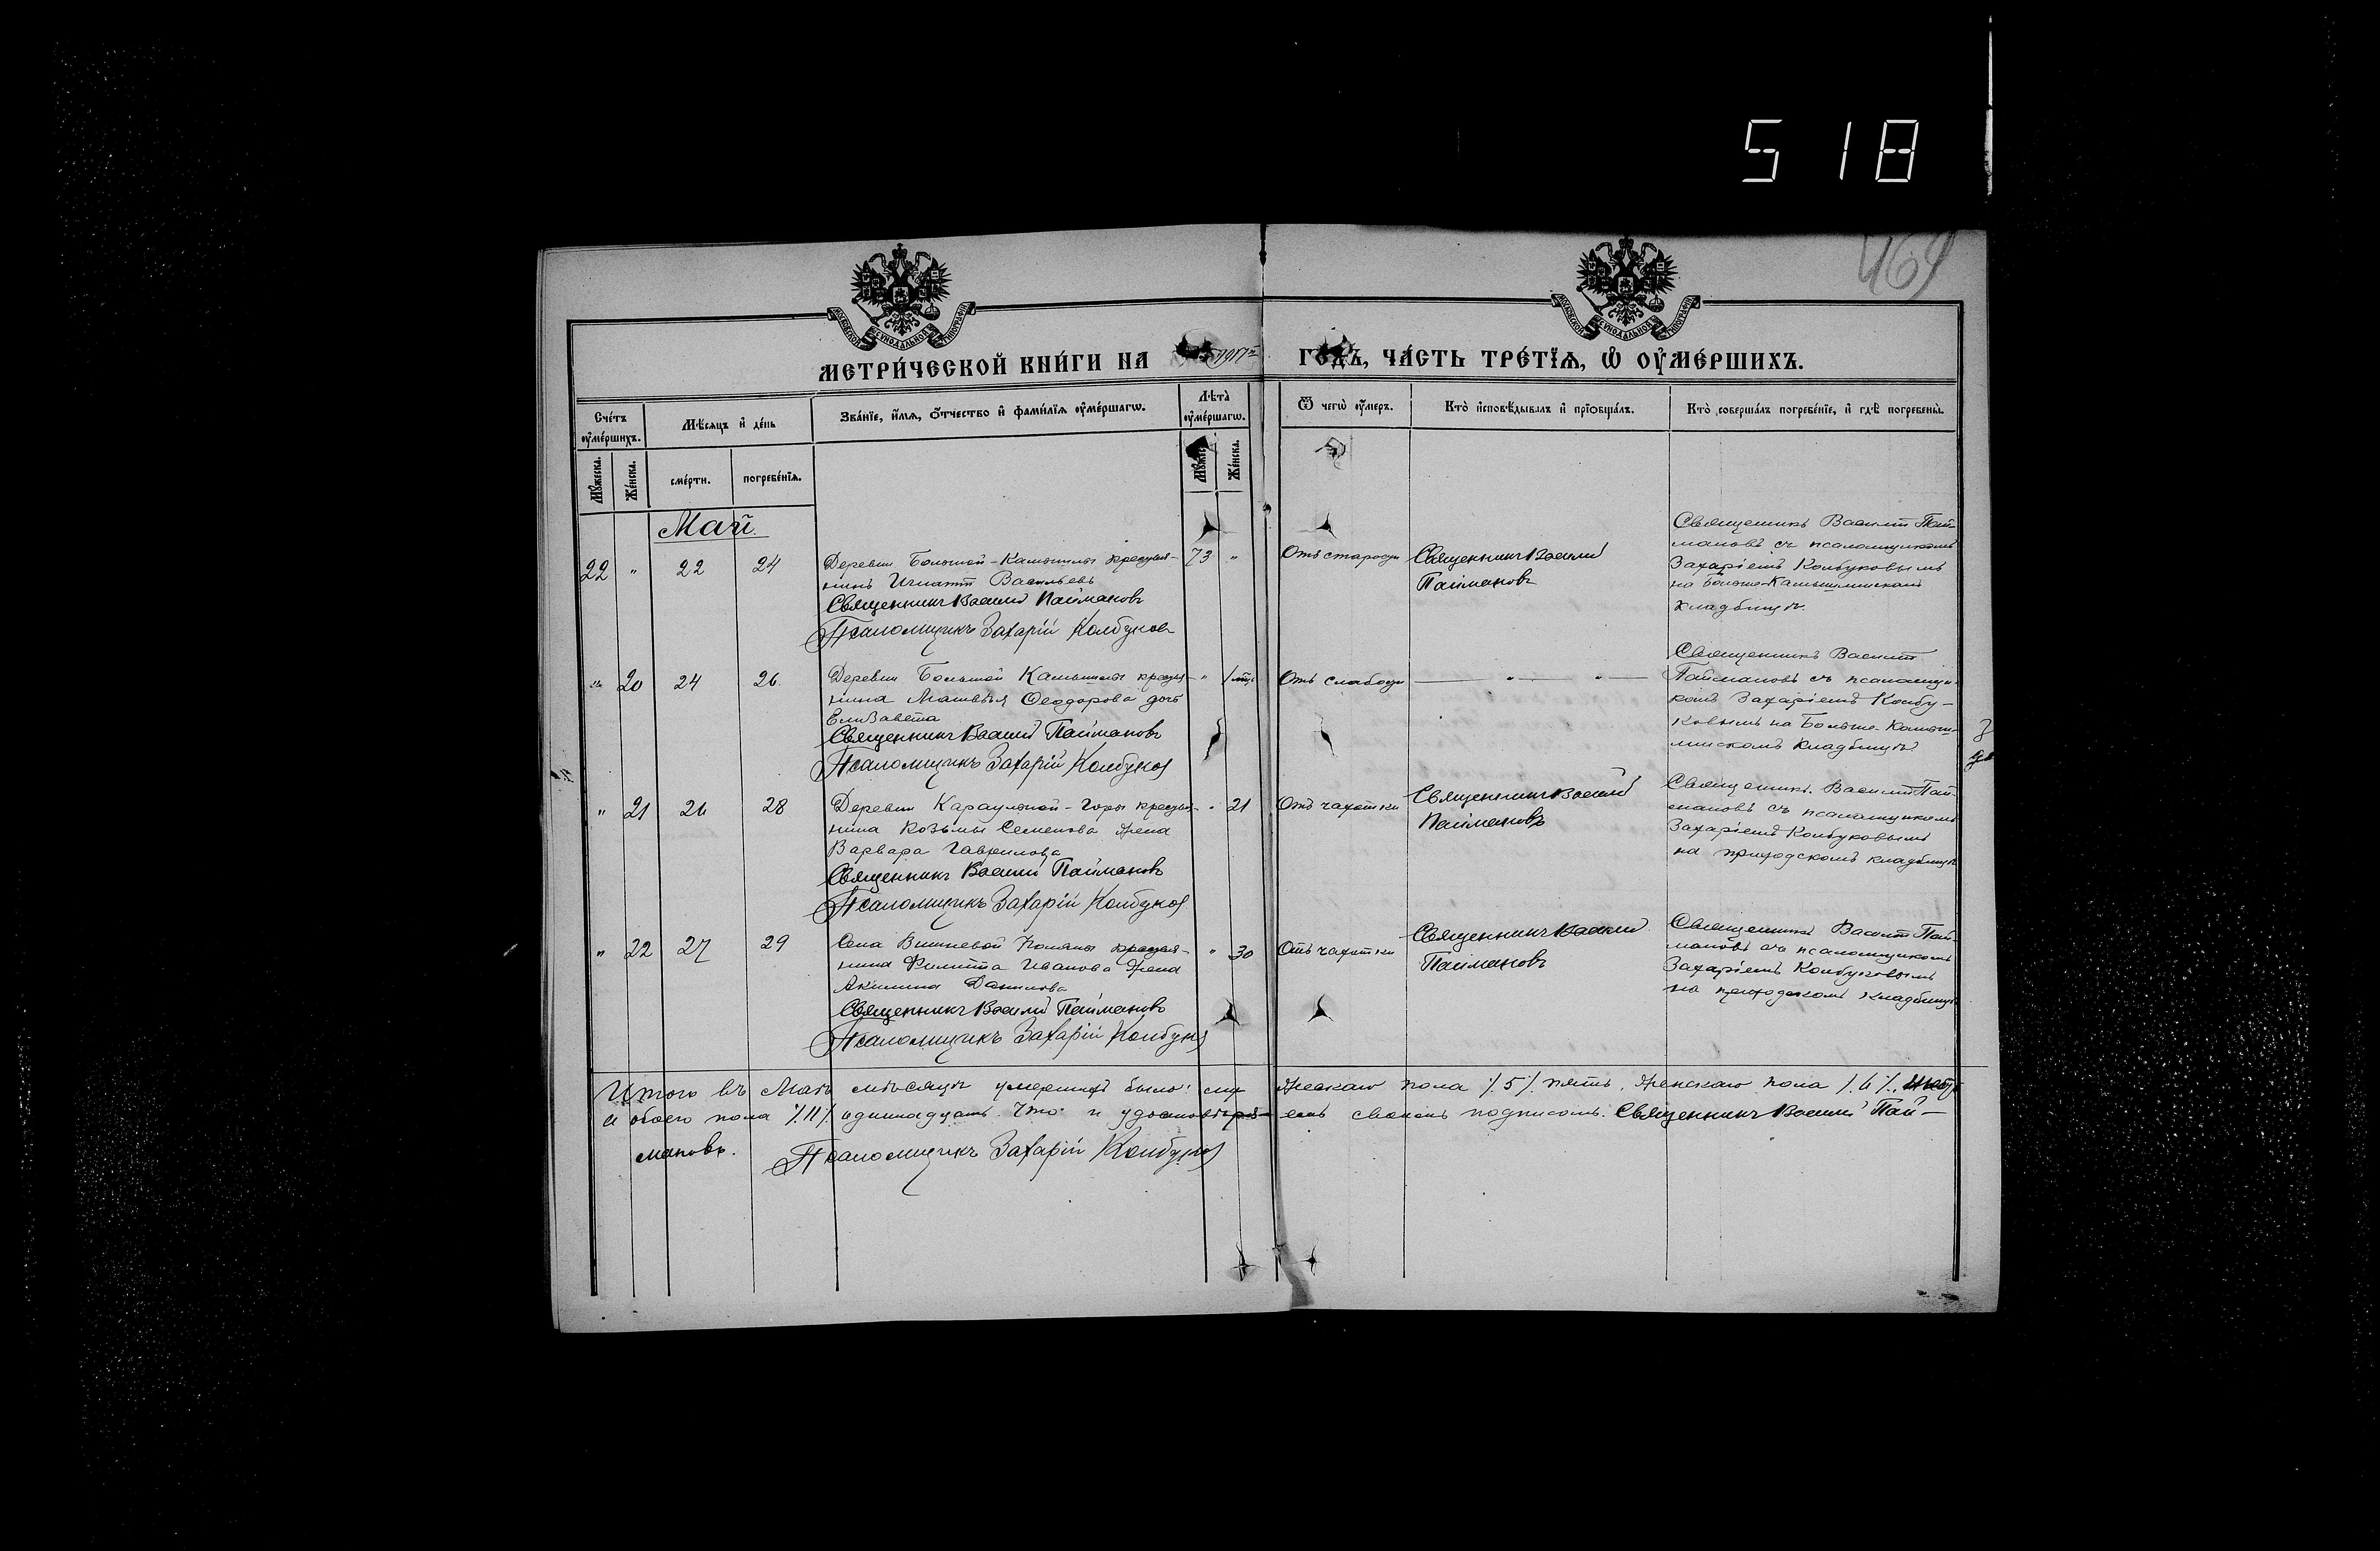 518
469
МОСКОВСКОЙ СѴНОДАЛЬНОЙ ТИПОГРАФІИ
МОСКОВСКОЙ СѴНОДАЛЬНОЙ ТИПОГРАФІИ
МЕТРИ́ЧЕСКОЙ КНИ́ГИ НА 1917 ГО́ДЪ, ЧА́СТЬ ТРЕ́ТЇѦ, Ѡ҆ ОУ҆МЕ́РШИХЪ.
Сче́тъ оу҆ме́ршихъ.
Мѣ́сяцъ и҆ де́нь
Зва́нїе, и҆́мѧ, ѻ҆́тчество и҆ фами́лїѧ оу҆ме́ршагѡ.
Лѣ́та оу҆ме́ршагѡ.
Ѿ чегѡ̀ оу҆́меръ.
Кто̀ и҆сповѣ́дывалъ и҆ прїѡбща́лъ.
Кто̀ соверша́лъ погребе́нїе, и҆ гдѣ̀ погребены̀.
Мꙋ́жеска.
Же́нска.
сме́рти.
погребе́нїѧ.
Же́нска.
Май.
22 " 22 24
Деревни Большой-Камышлы крестья-
нинъ Игнатій Васильевъ
Священникъ Василій Паймановъ
Псаломщикъ Захарій Колбуковъ
73 "
Отъ старости
Священникъ Василій
Паймановъ
Священникъ Василій Пай-
мановъ съ псаломщикомъ
Захаріемъ Колбуковымъ
на Больше-Камышлинскомъ
кладбищѣ.
" 20 24 26.
Деревни Большой Камышлы крестья-
нина Матвѣя Ѳеодорова дочь
Елизавета
Священникъ Василій Паймановъ
Псаломщикъ Захарій Колбуковъ
" 1 мѣс.
Отъ слабости
" "
Священникъ Василій
Паймановъ съ псаломщи-
комъ Захаріемъ Колбу-
ковымъ на Больше-Камыш-
линскомъ кладбищѣ
" 21 26 28
Деревни Караульной-Горы крестья-
нина Козьмы Семенова жена
Варвара Гаврилова
Священникъ Василій Паймановъ
Псаломщикъ Захарій Колбуковъ
" 21
Отъ чахотки
Священникъ Василій
Паймановъ
Священникъ Василій Пай-
мановъ съ псаломщикомъ
Захаріемъ Колбуковымъ
на приходскомъ кладбищѣ
" 22 27 29
Села Вишневой Поляны крестья-
нина Филиппа Иванова жена
Акилина Данилова
Священникъ Василій Паймановъ
Псаломщикъ Захарій Колбуковъ
" 30
Отъ чахотки
Священникъ Василій
Паймановъ
Священникъ Василій Пай-
мановъ съ псаломщикомъ
Захаріемъ Колбуковымъ
на приходскомъ кладбищѣ
Итого въ Маѣ мѣсяцѣ умершихъ было: мужескаго пола /.5/. пять, женскаго пола /.6/.
и обоего пола /.11/. одиннадцать. Что и удостовѣряемъ своею подписомъ. Священникъ Василій Пай-
мановъ. Псаломщикъ Захарій Колбуковъ